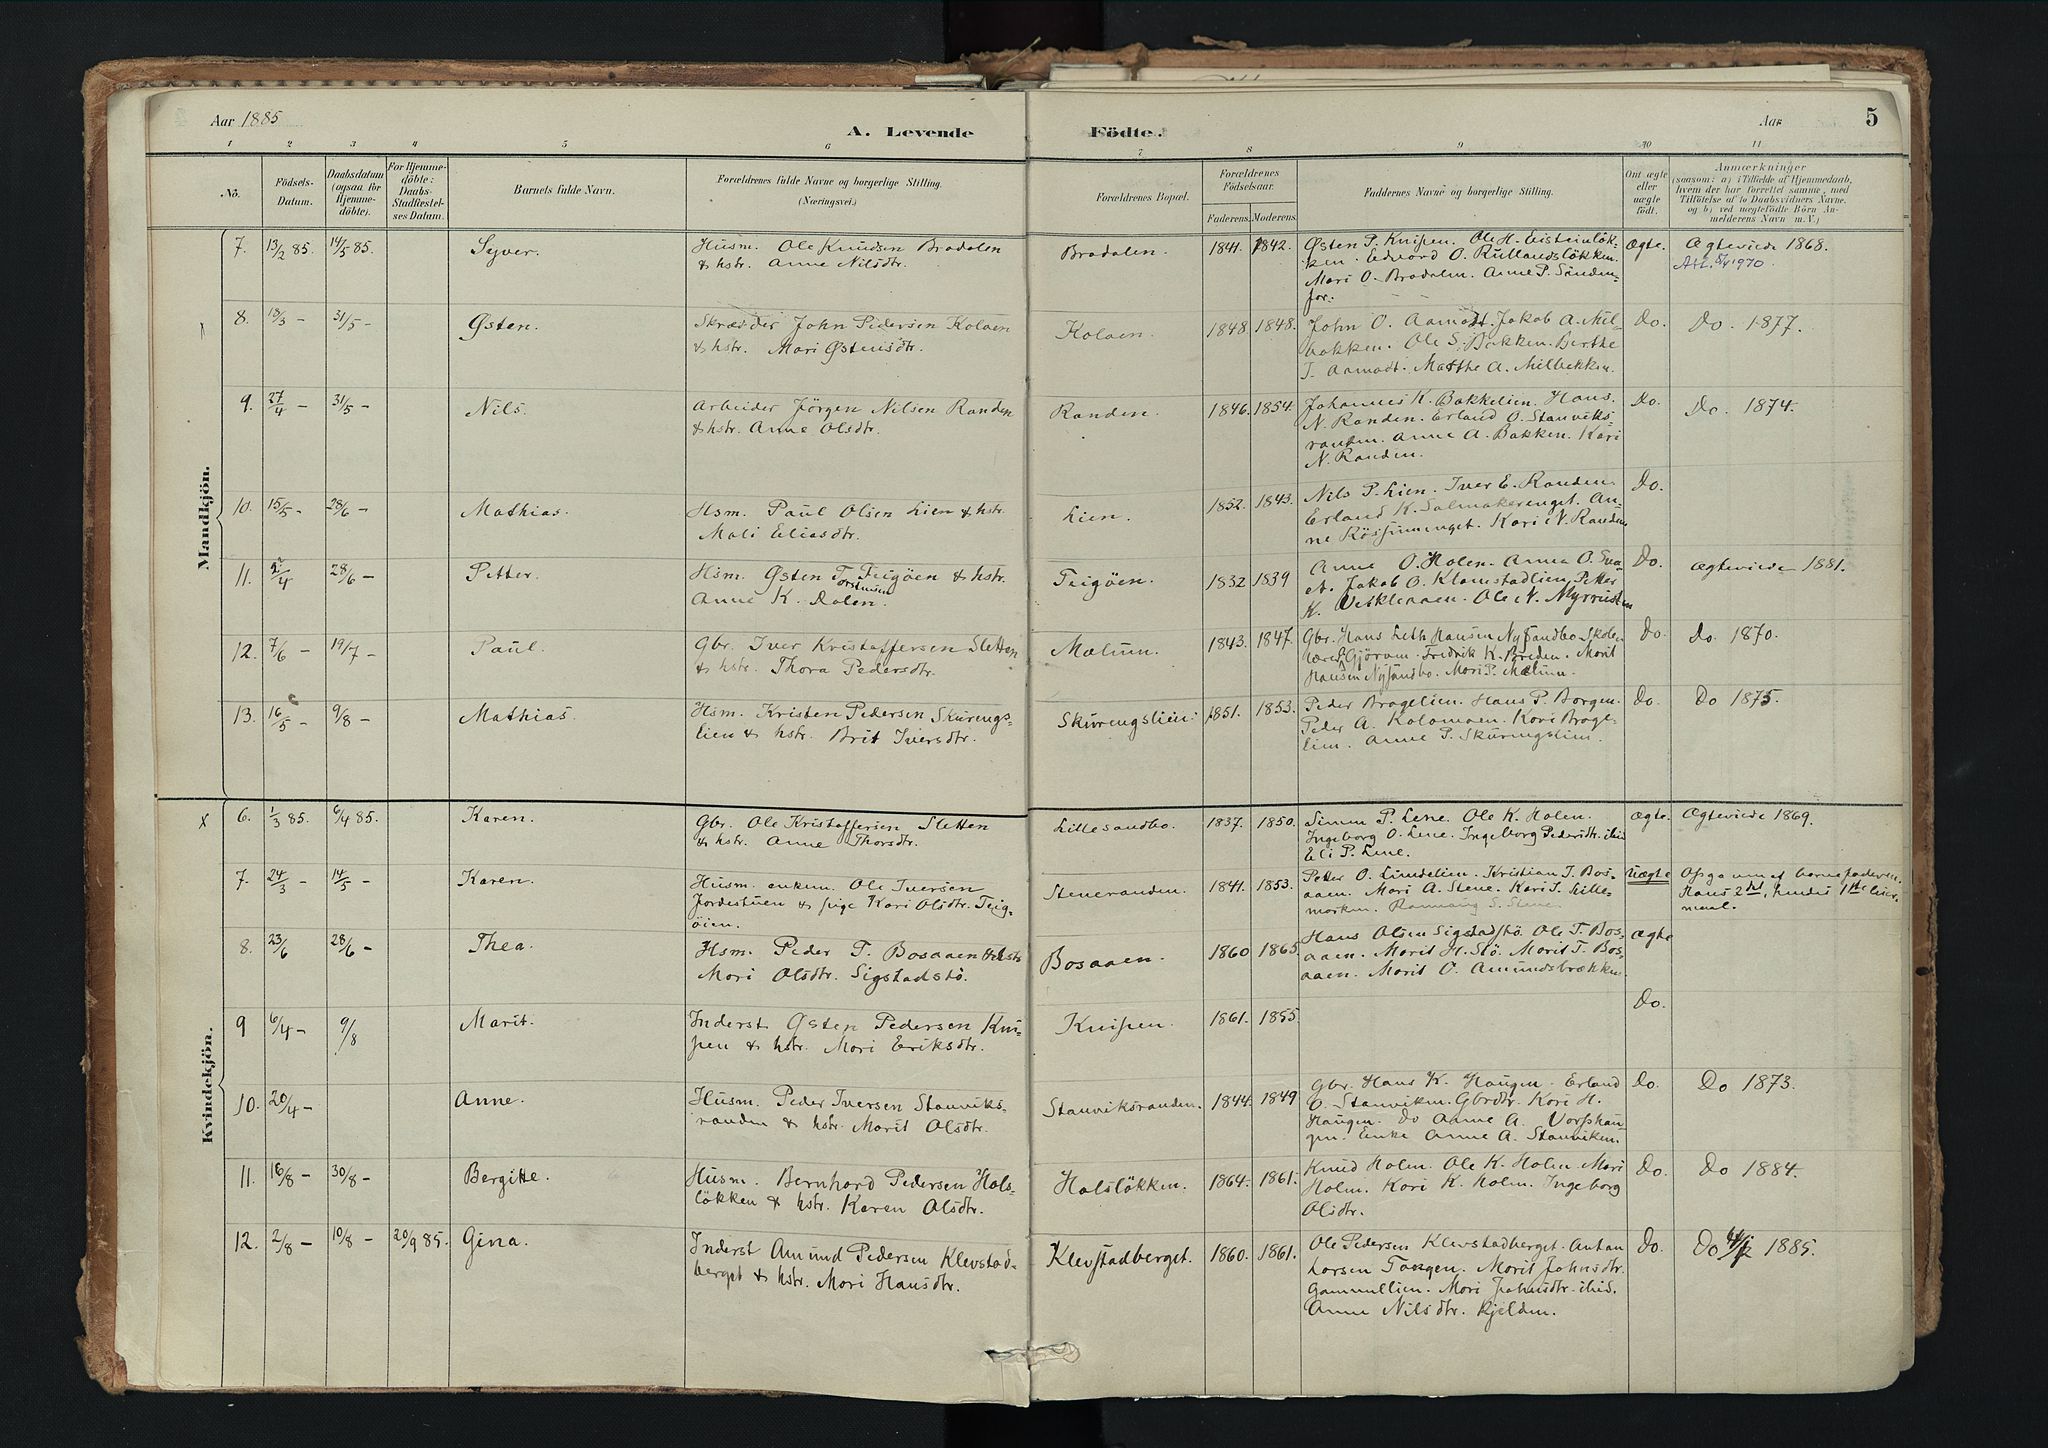 Aar 1885
A. Levende Födte.
Aar
5
1 2 3 4 5 6 7 8 9 10 11
Nò.
Födsels-Datum.
Daabsdatum (ogsaa for Hjemmedöbte).
For Hjemmedöbte: Daabs-Stadfæstelses Datum.
Barnets fulde Navn.
Forældrenes fulde Navne og borgerlige Stilling.
(Næringsvei.)
Forældrenes Bopæl.
Forældrenes Födselsaar.
Faderens. Moderens.
Faddernes Navne og borgerlige Stilling.
Om ægte eller uægte födt.
Anmærkninger
(saasom: a) i Tilfælde af Hjemmedaab, hvem der har forrettet samme, med Tilföielse af to Daabsvidners Navne. og b) ved uægtefödte Börn Anmelderens Navn m. V.)
Mandkjön.
7. 13/2 85. 14/5 85. Syver. Husm. Ole Knudsen Bradalen
& hstr. Anne Nilsdtr. Bradalen. 1841. 1842. Østen P. Knipen. Ole H. Eisteinløk-
ken. Edvard O. Rullandsløkken.
Mari O. Bradalen. Anne P. Sønden-
for. Ægte. Ægteviede 1868.
Att. 8/4 1970
8. 18/3 - 31/5 - Østen. Skrædder John Pedersen Kolaen
& hstr. Mari Østensdtr. Kolaen. 1848. 1848. John O. Aamodt. Jakob A. Mil-
bakken. Ole S. Bakken. Berthe
J. Aamodt. Marthe A. Milbakken. Do. Do. 1877.
9. 27/4 - 31/5 - Nils. Arbeider Jörgen Nilsen Randen
& hstr. Anne Olsdtr. Randen. 1846. 1854. Johannes K. Bakkelien. Hans
N. Randen. Erland O. Stauviks-
randen. Anne A. Bakken. Kari
N. Randen. Do. Do. 1874.
10. 15/5 - 28/6 - Mathias. Hsm. Paul Olsen Lien & hstr.
Mali Eliasdtr. Lien. 1852. 1843. Nils P. Lien. Iver E. Randen.
Erland K. Salmakerenget. An-
ne Kari N. Randen Do.
11. 2/4 28/6 - Petter. Hsm. Østen Torstensen Teigöen & hstr.
Anne K. Dalen. Teigöen. 1832 1839 Anne O. Holen. Anne O.
Jakob O. Klomstadlien. Petter
K. Ole N. Myrrusten Do. Ægteviede 1881.
12. 7/6 - 19/7 - Paul. Gbr. Iver Kristoffersen Sletten
& hstr. Thora Pedersdtr. Mælum. 1843. 1847. Gbr. Hans Hansen Nysandbo. Skole-
lærer Gjörum. Fredrik K. Breden. Marit
Hansen Nysandbo. Mari P. Mælum. Do Do. 1870.
13. 16/5 - 9/8 - Mathias. Hsm. Kristen Pedersen Skurengs-
lien & hstr. Brit Iversdtr. Skurengslien. 1851. 1853. Peder Bragelien. Hans P. Borgen.
Peder A. Kolomoen. Kari Brage-
lien. Anne P. Skurengslien. Do. Do 1875.
Kvindekjön.
x 6. 1/3 85. 6/4 85. Karen. Gbr. Ole Kristoffersen Sletten
& hstr. Anne Thorsdtr. Lillesandbo. 1837. 1850. Simen P. Lene. Ole K. Holen.
Ingeborg O. Lene. Ingeborg Pedersdtr. ibid
Eli P. Lene. ægte. Ægteviede 1869.
7. 24/3 - 14/5 - Karen. Husm. enkem. Ole Iversen
Jordestuen & pige Kari Olsdtr. Teig-
öien. Steneranden. 1841. 1853. Petter O. Lundelien. Kristian J. Bos-
aaen. Mari A. Stene. Kari T. Lille-
morken. Rannaug S. Stene. Uægte Opgaunef barnefaderen.
Hans 2det, hendes 1ste leier-
maal.
8. 23/6 28/6 - Thea. Hsm. Peder T. Bosaaen & hstr
Mari Olsdtr. Sigstadstö. Bosaaen. 1860 1865 Hans Olsen Sigstadstö. Ole T. Bos-
aaen. Marit H. Stö. Marit T. Bos-
aaen. Marit O. Amundsbrækken ægte
9 6/4 - 9/8 Marit. Inderst Østen Pedersen Kni-
pen & hstr. Mari Eriksdtr. Knipen. 1861. 1855. Do.
10. 20/4 - Anne. Husm. Peder Iversen Stauviks-
randen & hstr. Marit Olsdtr. Stauviksranden. 1844. 1849 Gbr. Hans K. Haugen. Erland
O. Stauviken. Gbrdtr. Kari H.
Haugen. Do Anne A. Vorphau-
gen. Enke Anne A. Stauviken. Do. Do 1873.
11. 16/8 - 30/8 - Bergitte. Husm. Bernhard Pedersen Hals-
løkken & hstr. Karen Olsdtr. Halsløkken. 1864. 1861. Knud Holen. Ole K. Holen. Mari
Holen. Kari K. Holen. Ingeborg
Olsdtr. Do. Do 1884.
12. 2/8 - 10/8 - 20/9 85. Gina. Inderst Amund Pedersen Klevstad-
berget & hstr. Mari Hansdtr. Klevstadberget. 1860. 1861. Ole Pedersen Klevstadberget. Anton
Larsen Tangen. Marit Johnsdtr.
Gammellien. Mari Johnsdtr. ibid.
Anne Nilsdtr. Kjelden. Do. Do 1885.